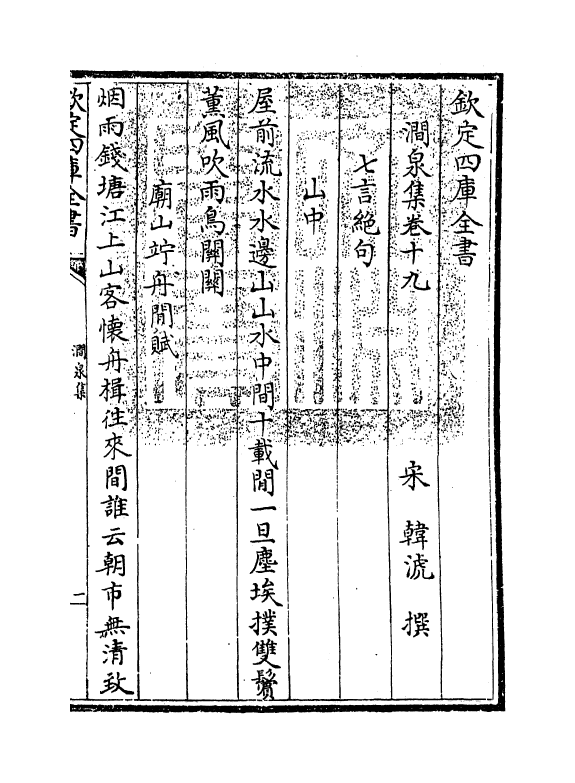 欽定四庫全書
澗泉集卷十九
宋 韓淲 撰
七言絶句
山中
屋前流水水邊山山水中間十載閒一旦塵埃撲雙鬢
薰風吹雨鳥關關
廟山竚舟閒賦
烟雨錢塘江上山客懐舟楫往來間誰云朝市無清致
欽定四庫全書
澗泉集
二